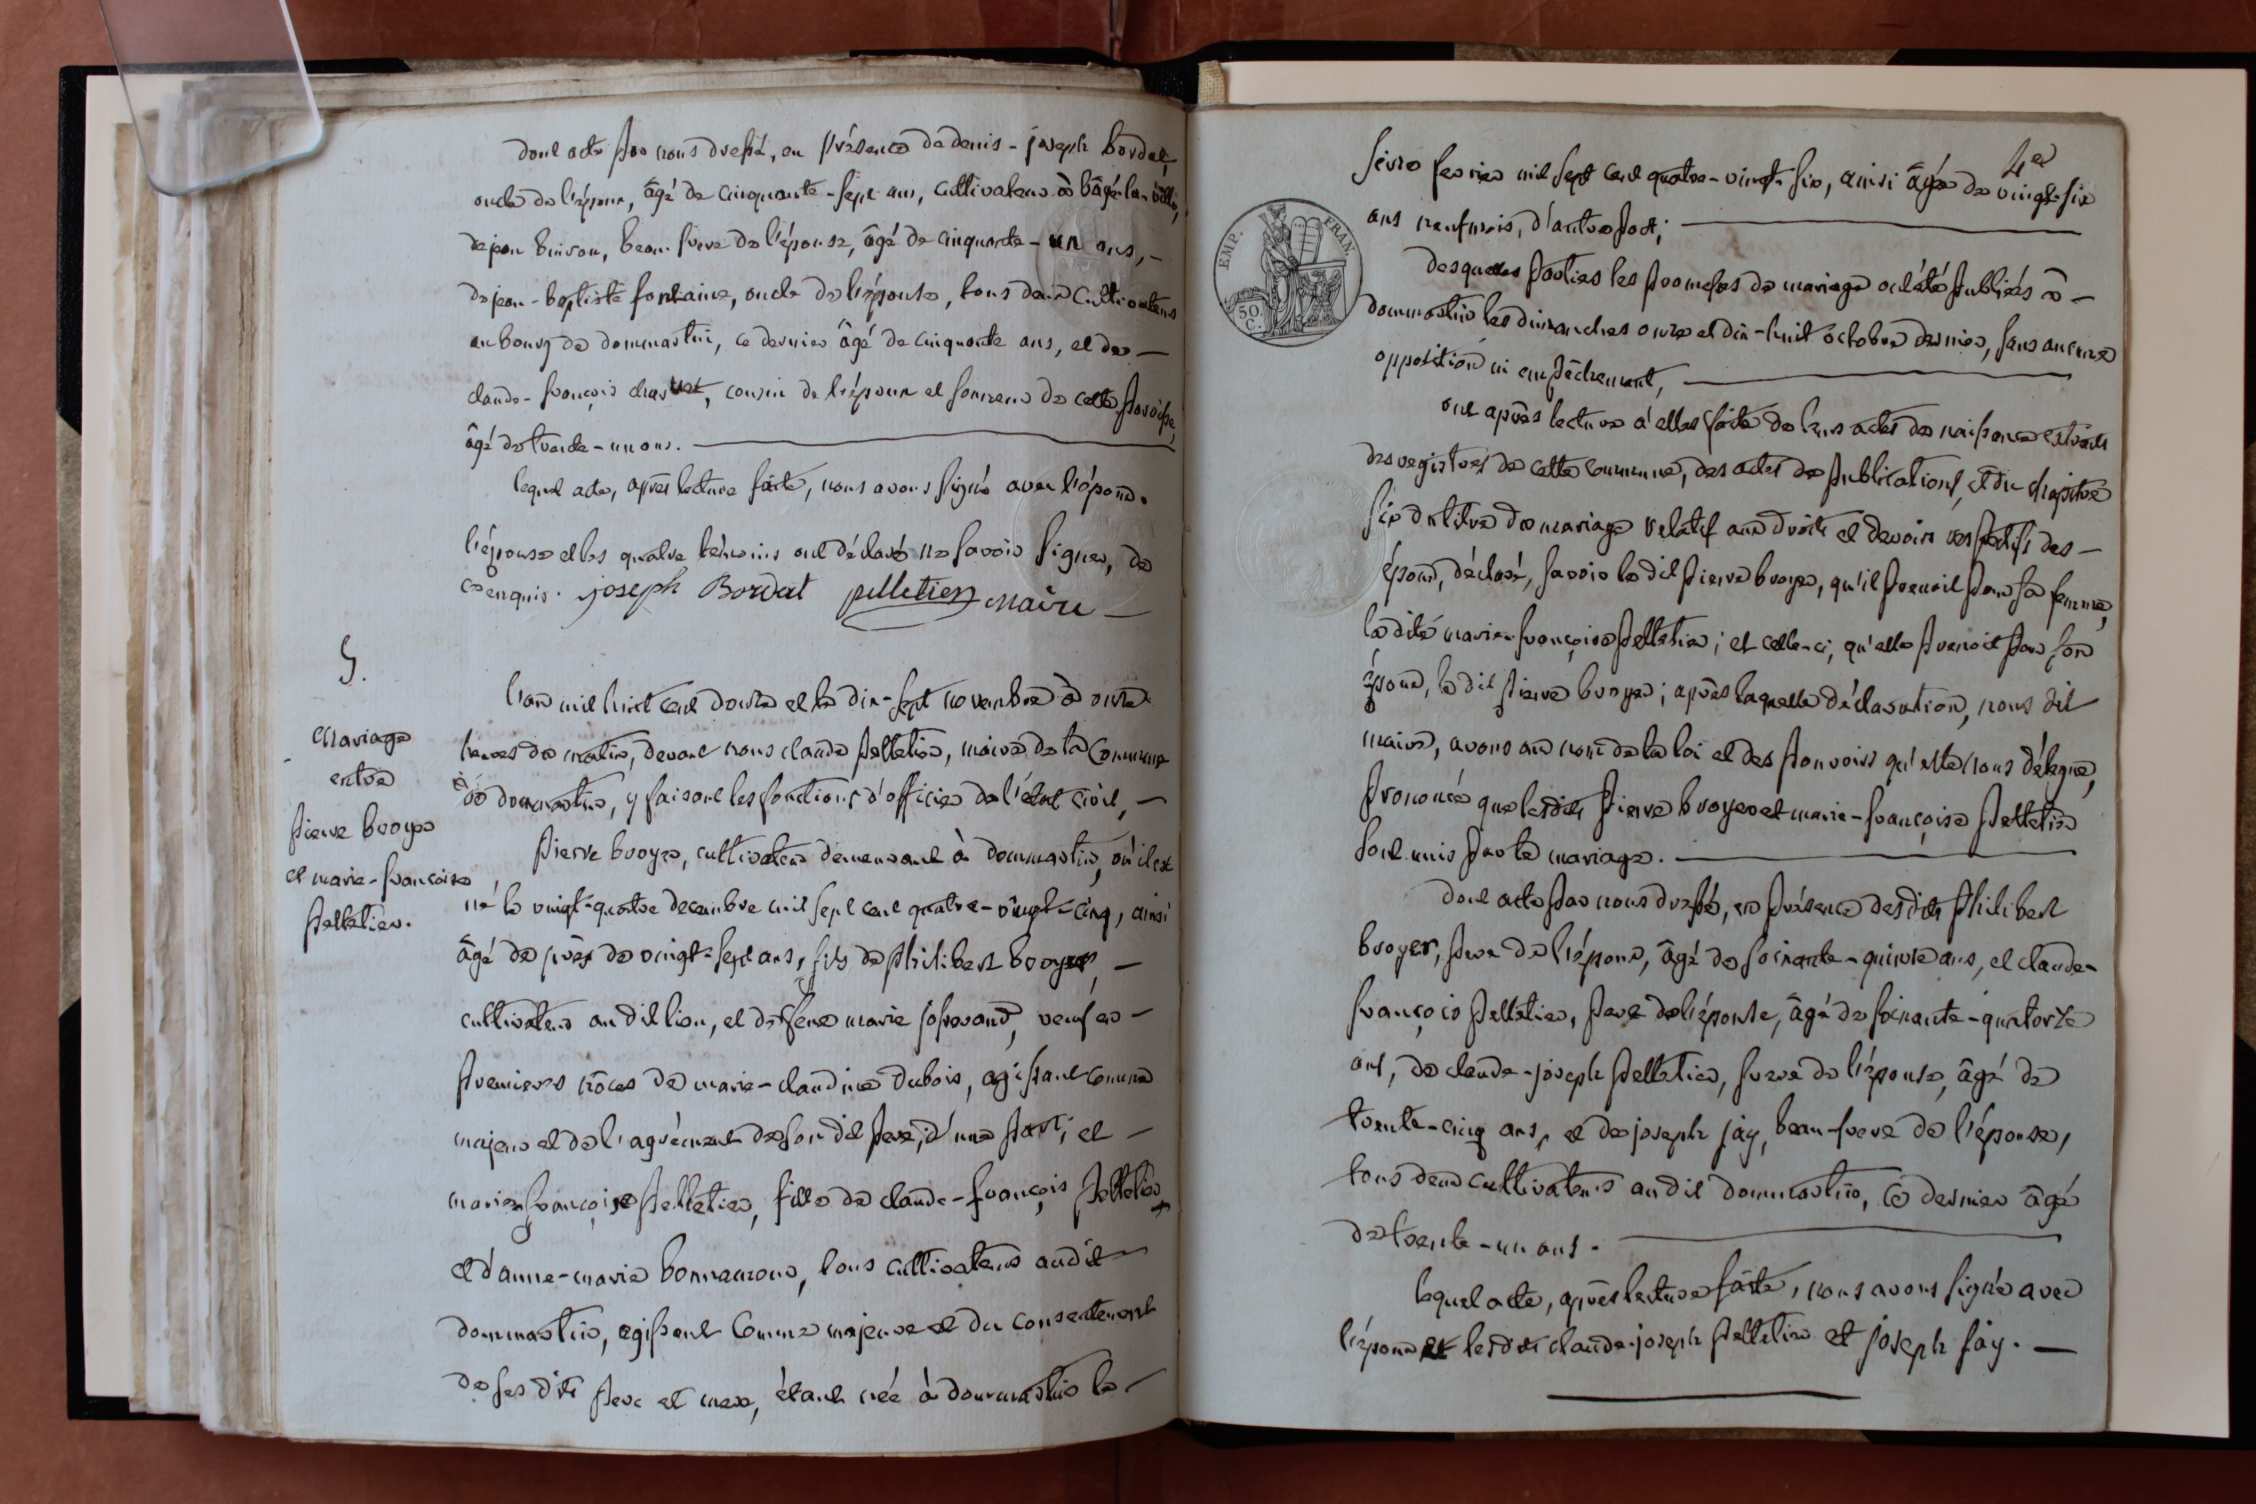 dont acte par nous dressé, en présence de denis-joseph bordat,
oncle de l'époux, âgé de cinquante-sept ans, cultivateur à bâgé-la-ville,
de jean buiron, beau-frere de l'épouse, âgé de cinquante-un ans, —
de jean-baptiste fontaine, oncle de l'épouse, tous deux cultivateurs
au bourg de dommartin, ce dernier âgé de cinquante ans, et de —
claude-françois, cousin de l'époux et de cette paroisse,
âgé de trente-un ans. —
lequel acte, après lecture faite, nous avons signé avec l'époux.
l'épouse et les quatre témoins ont déclaré ne savoir signer, de
ce enquis. joseph Bordat pelletier maire —
5.
Mariage
entre
pierre broyer
et marie-françoise
pelletier.
l'an mil huit cent douze et le dix-sept novembre à onze
heures du matin, devant nous claude pelletier, maire de la Commune
de dommartin, y faisant les fonctions d'officier de l'état civil, —
pierre broyer, cultivateur demeurant à dommartin, où il est
né le vingt-quatre decembre mil sept cent quatre-vingt-cinq, ainsi
âgé de près de vingt-sept ans, fils de philibert broyer, —
cultivateur au dit lieu, et de feue marie, veuf en —
premieres nôces de marie-claudine dubois, agissant comme
majeur et de l'agrément de son dit pere, d'une part; et —
marie-françoise pelletier, fille de claude-françois pelletier
et d'anne-marie, tous cultivateurs au dit
dommartin, agissant comme majeure et du consentement
de ses dits pere et mere, étant née à dommartin le —
4e
seize fevrier mil sept cent quatre-vingt-six, ainsi âgée de vingt-six
ans neuf mois, d'autre part; —
EMP. FRAN.
50. C.
desquelles parties les promesses de mariage ont été publiées à —
dommartin les dimanches onze et dix-huit octobre dernier, sans aucune
opposition ni empêchement, —
ont après lecture à elles faite de leurs actes de naissance extraits
des registres de cette commune, des actes de publications, et du chapitre
six du titre du mariage relatif aux droits et devoirs respectifs des —
époux, déclaré, savoir le dit pierre broyer, qu'il prenoit pour sa femme,
la dite marie-françoise pelletier; et celle-ci, qu'elle prenoit pour son
époux, le dit pierre broyer; après laquelle déclaration, nous dit
maire, avons au nom de la loi et des pouvoirs qu'elle nous délegue,
prononcé que lesdits pierre broyer et marie-françoise pelletier
sont unis par le mariage. —
dont acte par nous dressé, en présence desdits philibert
broyer, pere de l'époux, âgé de soixante-quinze ans, et claude-
françois pelletier, pere de l'épouse, âgé de soixante-quatorze
ans, de claude-joseph pelletier, frere de l'épouse, âgé de
trente-cinq ans, et de joseph jay, beau-frere de l'épouse,
tous deux cultivateurs au dit dommartin, ce dernier âgé
de trente-un ans. —
lequel acte, après lecture faite, nous avons signé avec
l'époux et lesdits claude-joseph pelletier et joseph jay. —